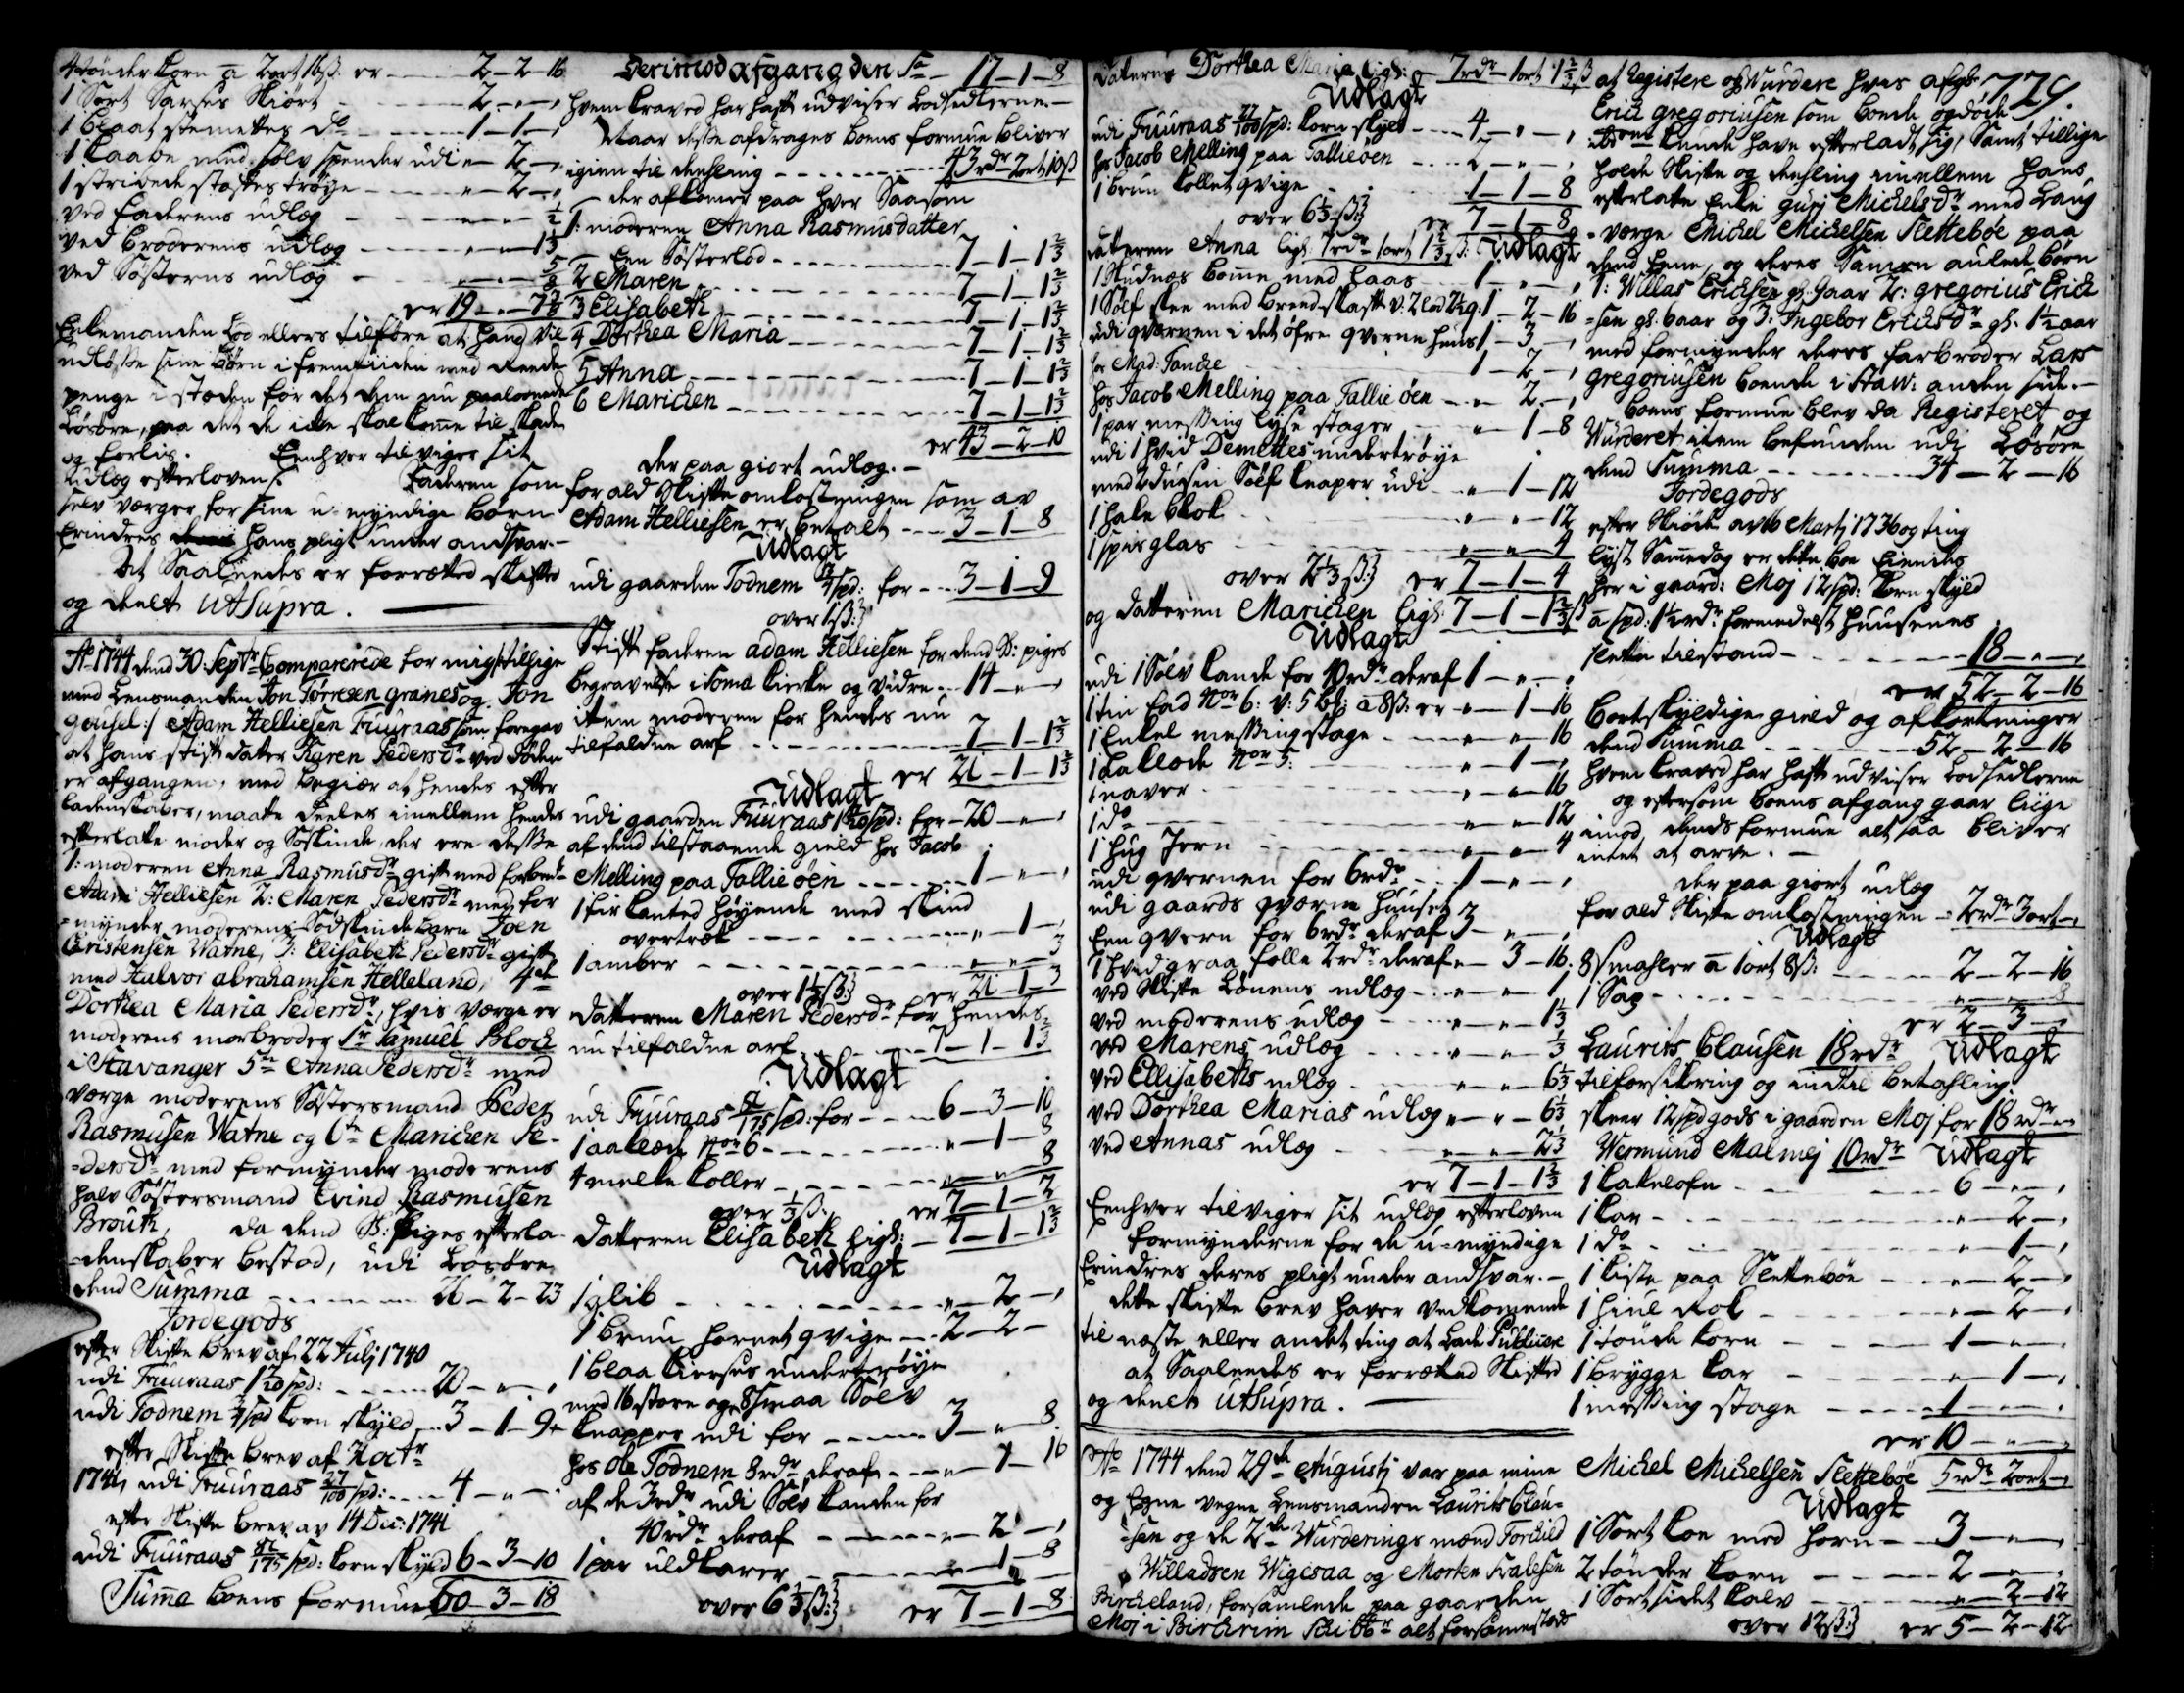 4 tønder korn a 2ort 16ß: er ---- 2-2-16
1 Sort Sarses skiört ---- 2-"-"
1 blaat stemettes do ---- 1-1-"
1 kaabe med sølv spender udi "- 2-"
1 stribede stoffes trøye ---- "- 2-"
ved faderens udlæg ---- "-"- 1/2
ved broderens udlæg ---- "-"- 1 1/3
ved Søsterns udlæg ---- "-"- 5/8
er 19-"-7
Enkemanden lod ellers tilføre at hand vil
udløsse sine børn i fremtiiden med rede
penge i steden for det dem nu paaloednede
Løsøre, paa det de icke skal komme til skade
og forliis. Eenhver tilviges sit
udlæg efterloven. Faderen som
selv værger for sine u-myndige børn
Erindres hans pligt under andsvar.-
At Saaledes er forrættet skiftet
og deelt UtSupra.
Ao 1744 dend 30: Septr Comparerede for mig tillige
med Lensmanden Jon Tørresen Grannes og Jon
Gousel :/ Adam Helliesen Fuuraas som foregav
at hans stift dater Karen Pedersdr ved Døden
er afgangen, med begiær at hendes efter
ladenskaber, maatte deeles imellem hendes
efterlatte moder og Søskinde, der ere desse
1: moderen Anna Rasmusdr gift med forbem-
Adam Helliesen 2: Maren Pedersdr med for
=mynder moderens Sødskindebarn Joen
Christensen Watne, 3: Elisabeth Pedersdr gift
med Halvor abrahamsen Helleland, 4de
Dorthea Maria Pedersdr, hvis værge er
moderens morbroder Sr Samuel Block
i Stavanger 5te Anna Pedersdr med
værge moderens Søstersmand Peder
Rasmusen Watne og 6te Marichen Pe-
=dersdr med formynder moderens
halv Søstersmand Evind Rasmusen
Brouth, da dend Sl: Piges efterla-
=denskaber bestod, udi Løsøre
dend Summa ---- 26-2-23
Jordegods
efter skifte brev af 22 Julj 1740
udi Fuuraas 1 7/20 spd: ---- 20-"-"
udi Todnem 3/4 spd korn skyld -- 3-1-9
efter skifte brev af 7 octr
1741 udi Fuuraas 27/100 spd: ---- 4-"-
efter skifte brev av 14 Dec: 1741
udi Fuuraas 81/175 spd: korn skyld 6-3-10
Suma boens formue 60-3-18
Derimod afgang den Sa - 17-1-8
hvem kraved har hafft udviser Lodsedlerne.-
Naar desse afdrages boens formue bliver
igien til deeling ---- 43rdr 2ort 10ß
der afkomer paa hver Saasom
1: moderen Anna Rasmusdatter
Een Søsterlod ---- 7-1-1 2/3
2 Maren ---- 7-1-1 2/3
3 Elisabeth ---- 7-1-1 2/3
4 Dorthea Maria ---- 7-1-1 2/3
5 Anna ---- 7-1-1 2/3
6 Marichen ---- 7-1-1 2/3
er 43-2-10
der paa giort udlæg.-
for ald skifte omkostningen som av
Adam Helliesen er betalt ---- 3-1-8
Udlagt
udi gaarden Todnem 3/4 spd: for -- 3-1-9
over 1ß:}
Stiffaderen adam Helliesen for dend Sl: piges
begravelse i Soma kierke og videre .. 14-"-"
item moderen for hendes nu
tilfaldne arf ---- 7-1-1 2/3
er 21-1-1 2/3
Udlagt
udi gaarden Fuuraas 1 7/20 spd: for - 20-"-"
af dend tilstaaende gield hos Jacob
Melling paa Tallieøen ---- 1-"-"
1 firkanted høyende med skind
overtræk ---- "-1-"
1 amber ---- "-"-3
over 1 1/3 ß:} er 21-1-3
Datteren Maren Pedersdr for hendes
nu tilfaldne arf ---- 7-1-1 2/3
Udlagt
udi Fuuraas 81/175 spd: for ---- 6-3-10
1 aaklæde Nor 6 ---- "-1-8
4 melke koller ---- "-"-8
over 1/3 ß: er 7-1-2
datteren Elisabeth ligs: - 7-1-1 2/3
Udlagt
1 glib ---- "-2-"
1 brun hornet qvige -- 2-2-
1 blaa kierses undertrøye
med 16 store og 8 smaa Sølv
knapper udi for ---- 3-"-8
hos Ole Todnem 8rdr deraf ---- "-1-16
af de 3rdr udi Sølv kanden for
40rdr deraf ---- "-2-"
1 par uldkarer ---- "-1-8
over 6 1/3 ß:} er 7-1-8
Daterns Dorthea Maria ligs: - 7rdr 1ort 1 2/3 ß
Udlagt
udi Fuuraas 27/100 spd: korn skyld ---- 4-"-"
hos Jacob Melling paa Tallieøen ---- 2-"-"
1 brun kollet qvige ---- 1-1-8
over 6 1/3 ß:} er 7-1-8
datteren Anna ligs. 7rdr 1ort 1 2/3 ß: Udlagt
1 Studnæs bome med laas ---- 1-"-"
1 Sølf skee med breed skaft v: 2 lod 2 1/2 q: 1-2-16
udi qværnen i det øfre qverne huus 1-3-"
hos Mad: Tancke ---- 1-2-"
hos Jacob Melling paa Tallie øen --- 2-"
1 par messing lyse stager ---- "-1-8
udi 1 hvid Demettes undertrøye
med 2 dusin Sølf knaper udi ---- "-1-12
1 hale blok ---- "-"-12
1 spisglas ---- "-"-4
over 2 1/3 ß:} er 7-1-4
og datteren Marichen ligs: 7-1-1 2/3 ß
Udlagt
udi 1 Sølv kande for 40rdr deraf 1-"-"
1 tin fad Nor 6: v: 5 b#: a 8ß: er "-1-16
1 Enkel messingstage ---- "-"-16
1 aaklæde Nor 5: ---- "-1-"
1 naver ---- "-"-16
1 do ---- "-"-12
1 hug Jern ---- "-"-4
udi qvernen for 6rdr ---- 1-"-"
udi gaards qværne huuset
Een qvern for 6rdr deraf 3-"-"
1 hvidgraa folle 2rdr deraf "-3-16
ved skifte lønens udlæg ---- "-"-1
ved moderens udlæg ---- "-"-1 1/3
ved Marens udlæg ---- "-"-1/3
ved Ellisabeths udlæg ---- "-"-6 1/3
ved Dorthea Marias udlæg "-"-6 1/3
ved Annas udlæg ---- "-"-2 1/3
er 7-1-1 2/3
Eenhver tilviges sit udlæg efterloven
formynderne for de u-myndige
Erindres deres pligt under andsvar.-
dette skifte brev haver vedkomende
til næste eller andet ting at lade Publicere
at Saaledes er forrættet skiftet
og deelt UtSupra.
Ao 1744 dend 29de Augustj var paa mine
og Egne vegne Lensmanden Laurits Clau-
=sen og de 2de Wurderings mænd Torchild
Willadsen Wigesaa og Morten Svalesen
Bircheland, forsamlede paa gaarden
Moj i Birchrim Schibbr alt forsamestæds
729.
at Registere og Wurdere hvis afgl:
Erich Gregoriusen som boede og døde
kunde have efterladt sig, Samt tillige
holde skifte og deeling imellem hans
efterlatte Enke Guri Michelsdr med Laug
=værge Michel Michelsen Slettebøe paa
dend Eene, og deres Samen aulede børn
1: Willas Erichsen gl. 9aar 2: Gregorius Erich
=sen gl. 6aar og 3: Ingebor Erichsdr gl. 1 1/2 aar
med formynder deres farbroder Lars
Gregoriusen boende i Staw: anden side.-
boens formue blev da Registeret og
Wurderet item befunden udi Løsøre
dend Summa ---- 34-2-16
Jordegods
efter skiøde av 16 Martj 1736 og ting
lyst Samedag er dette boe Eiendes
her i gaard: Moj 12 spd: korn skyld
a spd: 1 1/2 rdr formedelst huusenes
slette tilstand ---- 18-"-"
er 52-2-16
bortskyldige gield og afkortninger
dend Summa ---- 52-2-16
hvem kraved har hafft udviser Lodsedlerne
og eftersom boens afgang gaar liige
imod, dends formue alt saa bliver
intet at arve.-
der paa giort udlæg
for ald skifte omkostningen - 2rdr 3ort-"
Udlagt
8 smahler a 1ort 8ß: ---- 2-2-16
1 Sag ---- "-"-8
er 2-3-"
Laurits Clausen 18rdr Udlagt
til forsikring og indtil betaling
skeer 12 spd gods i gaarden Moj for 18rdr
Wermund Malmej 10rdr Udlagt
1 kakelofn ---- 6-"-"
1 kar ---- "-2-"
1 do ---- "-1-"
1 kiste paa Slettebøe ---- "-2-"
1 hiul Rok ---- "-2-"
1 tønde korn ---- 1-"-"
1 brygge kar ---- "-1-"
1 messing stage ---- 1-"-"
er 10-"-"
Michel Michelsen Slettebøe 5rdr 2ort-"
Udlagt
1 Sort koe med horn -- 3-"-"
2 tønder korn ---- 2-"-"
1 Sortsidet kalv ---- "-2-12
over 12ß:} er 5-2-12